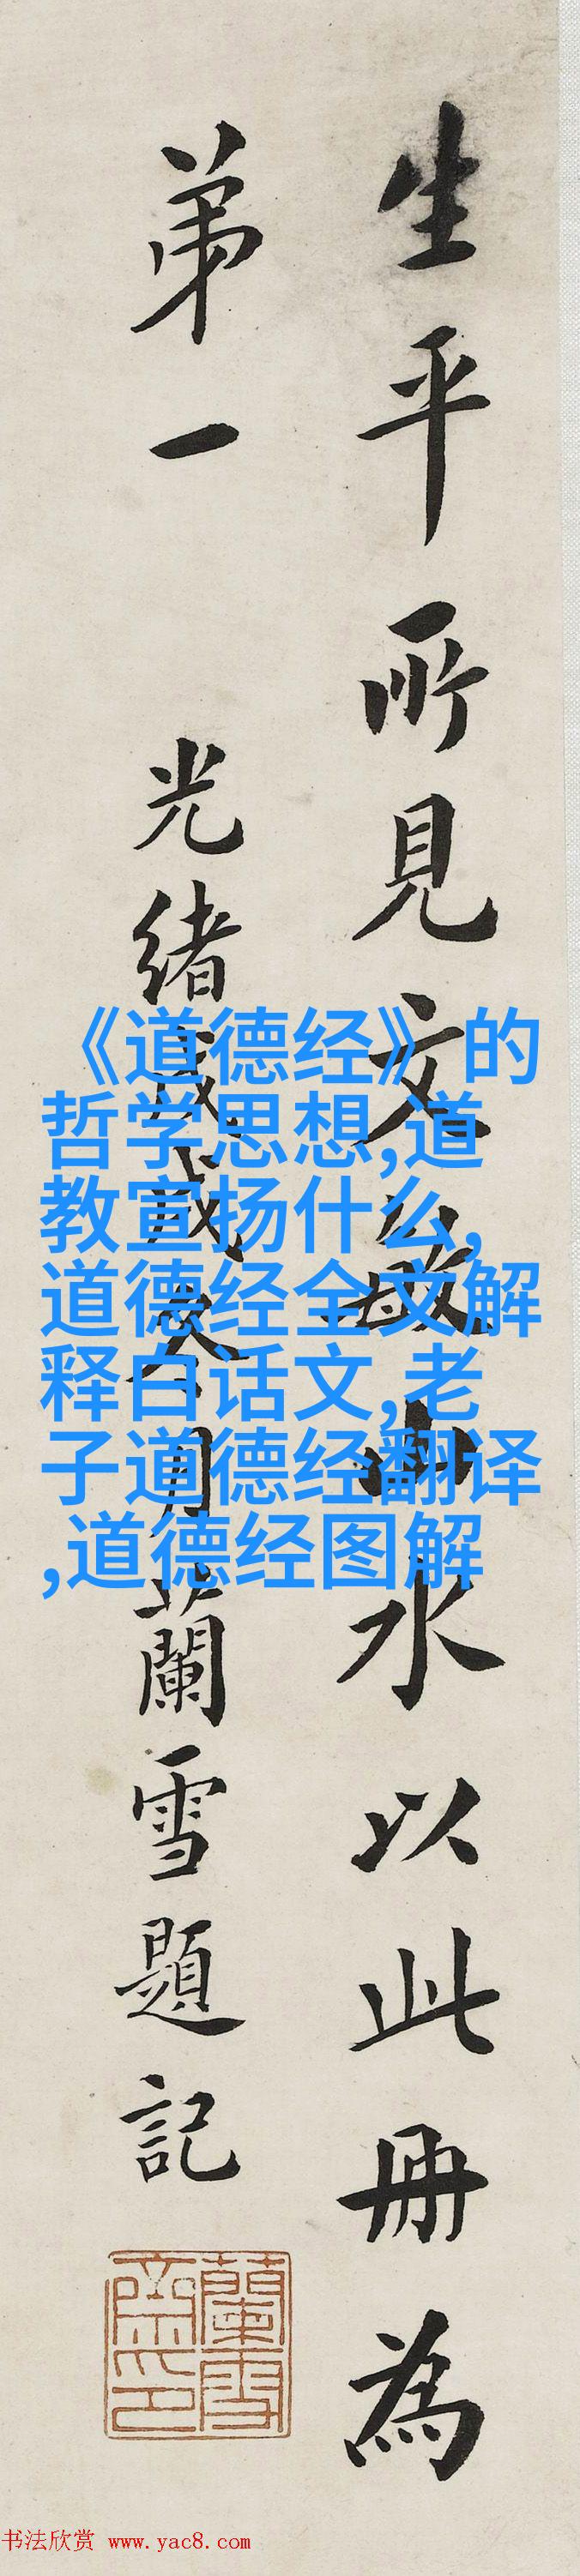 生平所見文敏山水以此冊為
弟一 光緒戊戌冬月蘭雪題記
《道德经》的
哲学思想,道
教宣扬什么,
道德经全文解
释白话文,老
子道德经翻译
,道德经图解
蘭雪
齋印
书法欣赏 www.yac8.com